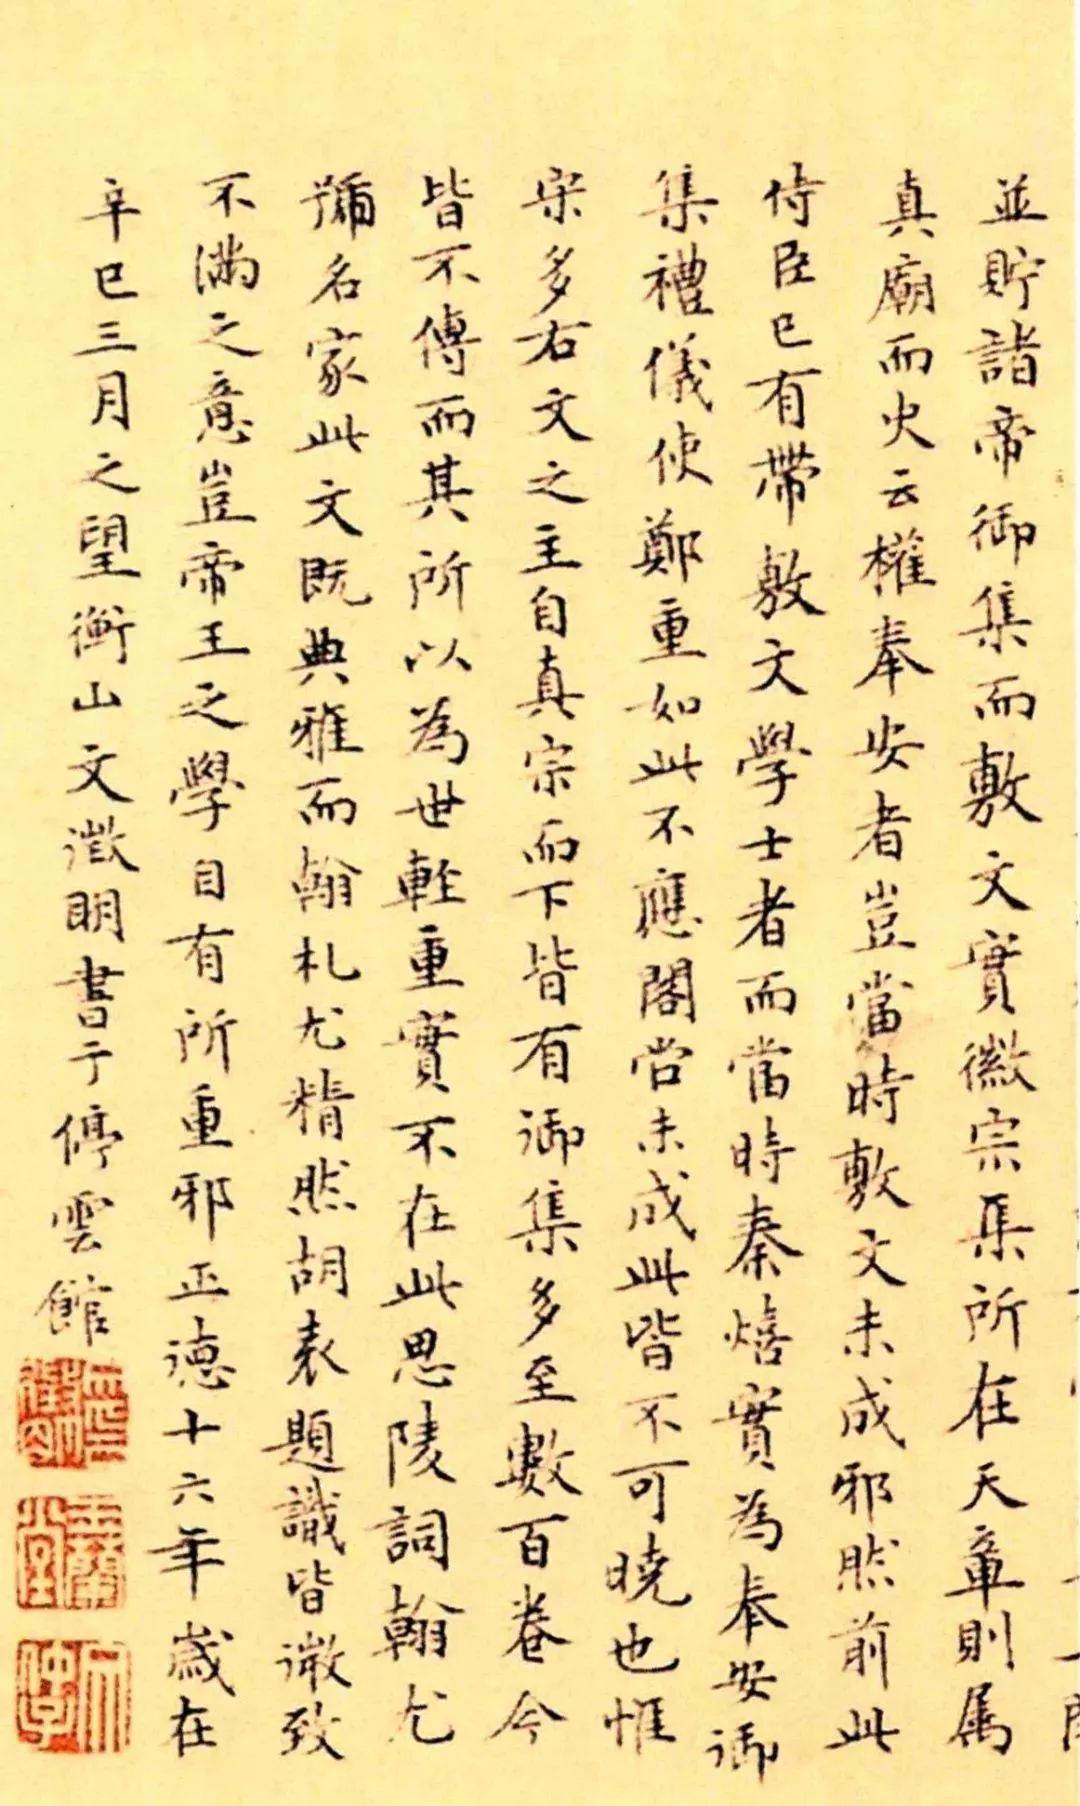 並貯諸帝御集而敷文實徽宗集所在天章則属
真廟而火云權奉安者豈當時敷文未成邪然前此
侍臣已有帶敷文學士者而當時秦熺實為奉安御
集禮儀使鄭重如此不應閣尚未成此皆不可曉也惟
宋多右文之主自真宗而下皆有御集多至數百卷今
皆不傳而其所以為世輕重實不在此思陵詞翰尤
號名家此文既典雅而翰札尤精然胡表題識皆微致
不滿之意豈帝王之學自有所重邪正德十六年歲在
辛巳三月之望衡山文徵明書于停雲館